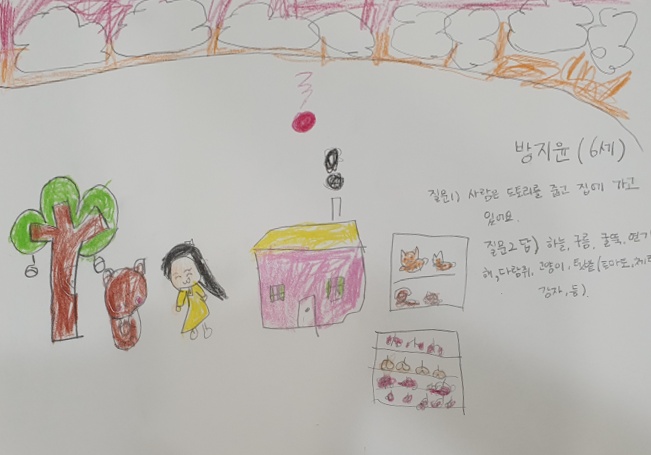 방지윤 (6세)
질문1) 사람은 도토리를 줍고 집에 가고
있어요.
질문2 답) 하늘, 구름, 굴뚝, 연기
해, 다람쥐, 고양이, 텃밭(토마토,
감자, 등)